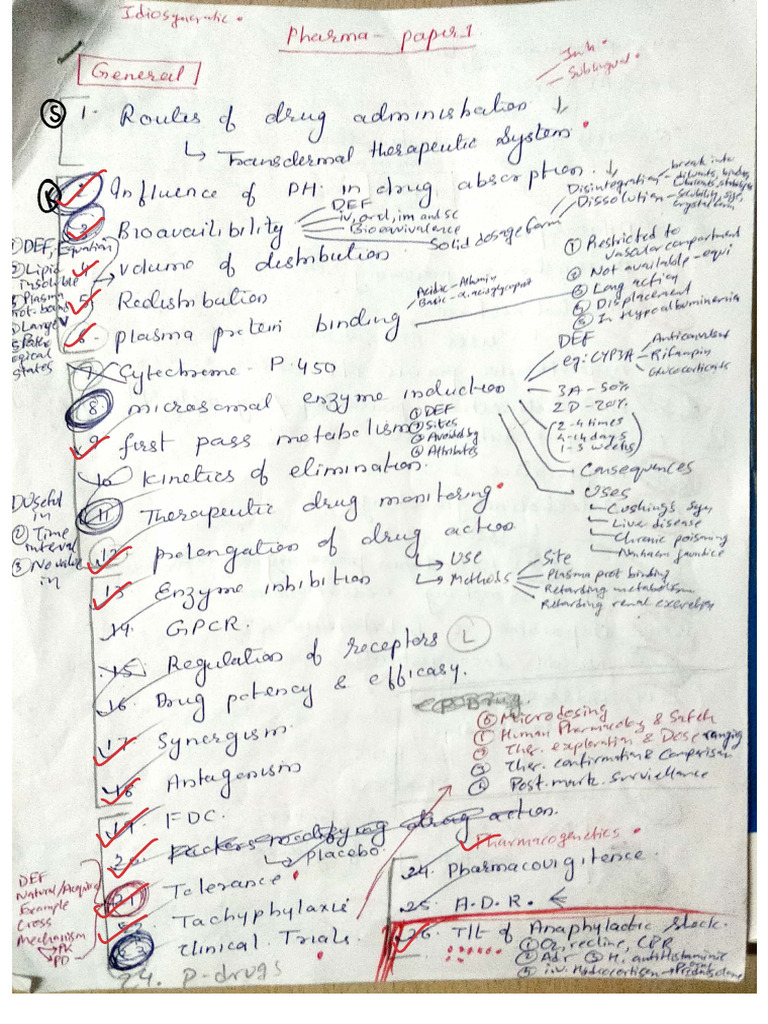 Idiosyncratic •
Pharma - paper 1
General
Inh.
Sublingual •
S 1. Routes of drug administration ↓
↳ Transdermal therapeutic System •
R 2. Influence of PH in drug absorption. ↓
Disintegration - break into
diluents, binders,
Lubricants, stabilizers
Dissolution - Solubility, size,
crystal form
3. Bioavailibility
DEF
iv, oral, im and sc
Bioequivalence
Solid dosage form
4. → Volume of distribution
① DEF, Equation
② Lipid
insoluble
③ Plasma
prot. bound
④ Large V
⑤ Patho
logical
states
5. Redistribution
6. plasma protein binding
Acidic - Albumin
Basic - α, acid glycoprot
① Restricted to
vascular compartment
② Not available - equi
③ Long action
④ Displacement
⑤ In Hypoalbuminemia
7. Cytochrome - P-450
8. microsomal enzyme induction
DEF
eg: CYP3A
Anticonvulsant
Rifampin
Glucocorticoids
3A - 50%
2D - 20%
2-4 times
4-14 days
1-3 weeks
Consequences
Uses
Cushings Syn
Liver disease
Chronic poisoning
Nonhaem jaundice
9. first pass metabolism
① DEF
② Sites
③ Avoided by
④ Attributes
10. Kinetics of elimination.
11. Therapeutic drug monitoring •
① Useful
in
② Time
interval
③ No value
in
12. prolongation of drug action
↳ Use
↳ Methods
Site
Plasma prot binding
Retarding metabolism
Retarding renal excretion
13. Enzyme inhibition
14. GPCR.
15. Regulation of receptors L
16. Drug potency & efficasy.
17. Synergism.
18. Antagonism
⓪ Microdosing
① Human Pharmacology & Safety
② Ther. exploration & Dose ranging
③ Ther. confirmation & Comparison
④ Post. mark. Surviellance
19. FDC.
20. Factors modifying drug action.
↳ placebo
21. Tolerance •
DEF
Natural/Acquired
Example
Cross
Mechanism
PK
PD
Tachyphylaxis
Clinical Trials.
24. P-drugs
Pharmacogenetics •
24. Pharmacovigilence.
25. A.D.R. ←
26. Tlt of Anaphylactic shock.
① O2, recline, CPR
② Adr ③ H, antihistaminic
⑤ i.v. Hydrocortisone → oral Prednisolone